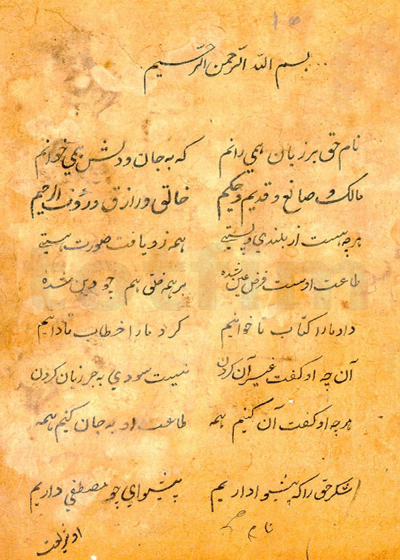 بسم الله الرحمن الرحیم
نام حق بر زبان همی رانم که به جان و دلش همی خوانم
مالک و صانع و قدیم و حکیم خالق و رازق و رؤف الرحیم
هرچه هست از بلندی و پستی همه زو یافت صورت هستی
طاعت اوست فرض عین شده بر همه خلق هم چو دین شده
داد ما را کتاب تا خوانیم کرد ما را خطاب تا دانیم
آن چه او گفت غیر آن کردن نیست سودی به جز زیان کردن
هرچه او گفت آن کنیم همه طاعت او به جان کنیم همه
شکر حق را که پیشوا داریم پیشوای چو مصطفی داریم